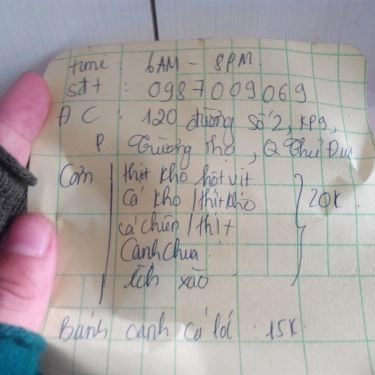 time : 6AM - 8PM
sđt : 0987009069
ĐC : 120 đường số 2, KP9,
P Trường Thọ, Q Thủ Đức
Cơm thịt kho hột vịt
Cá kho / thịt kho
cá chiên / thịt
Canh chua
ếch xào
20K
Bánh canh cá lóc : 15K